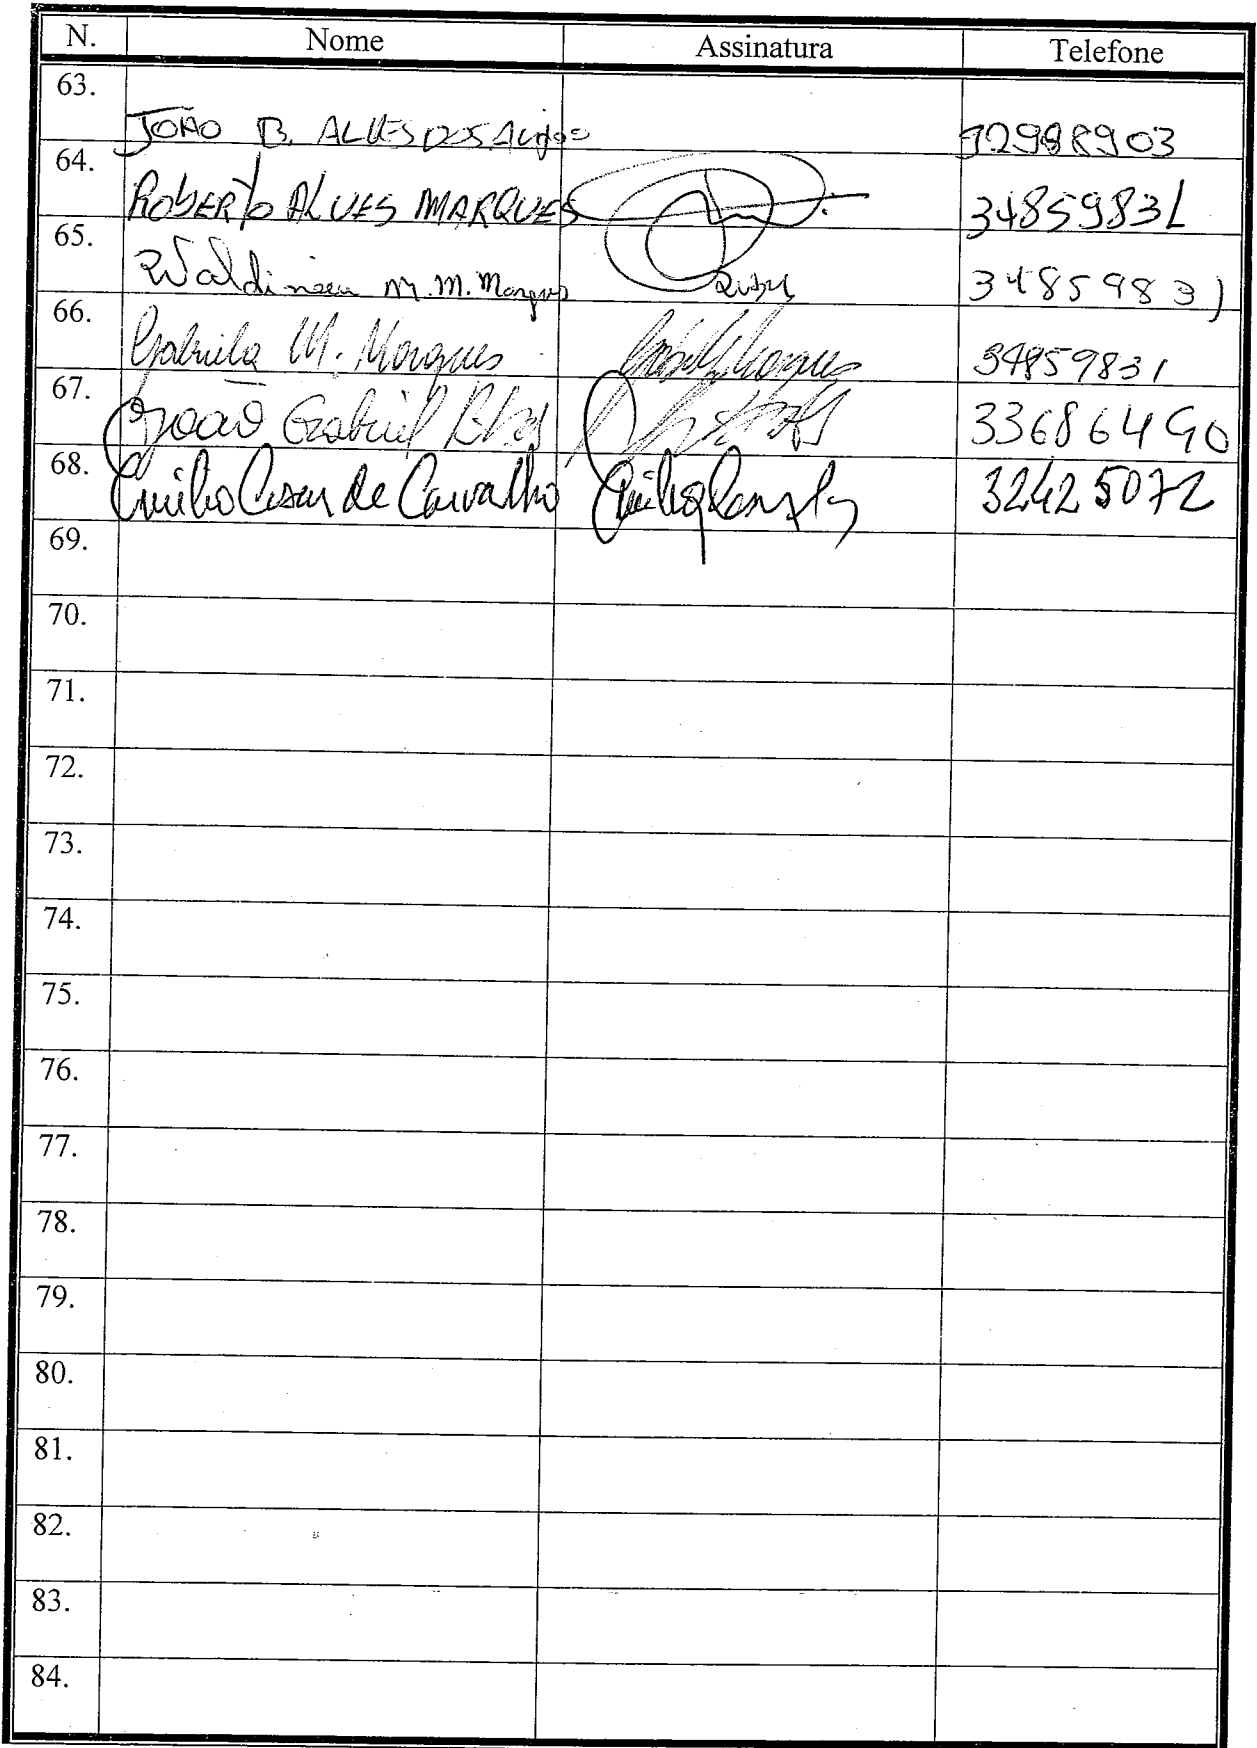 N. Nome Assinatura Telefone
63. JOÃO B. ALVES DOS 92988903
64. ROBERTO ALVES MARQUES 34859831
65. M. M. Marques 34859831
66. Gabriela M. Marques 34859831
67. João Gabriel 33686490
68. Emilio Cesar de Carvalho 32425072
69.
70.
71.
72.
73.
74.
75.
76.
77.
78.
79.
80.
81.
82.
83.
84.